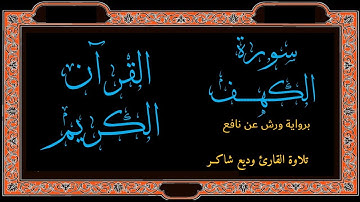 سورة
الكهف
القرآن
الكريم
برواية ورش عن نافع
تلاوة القارئ وديع شاكر